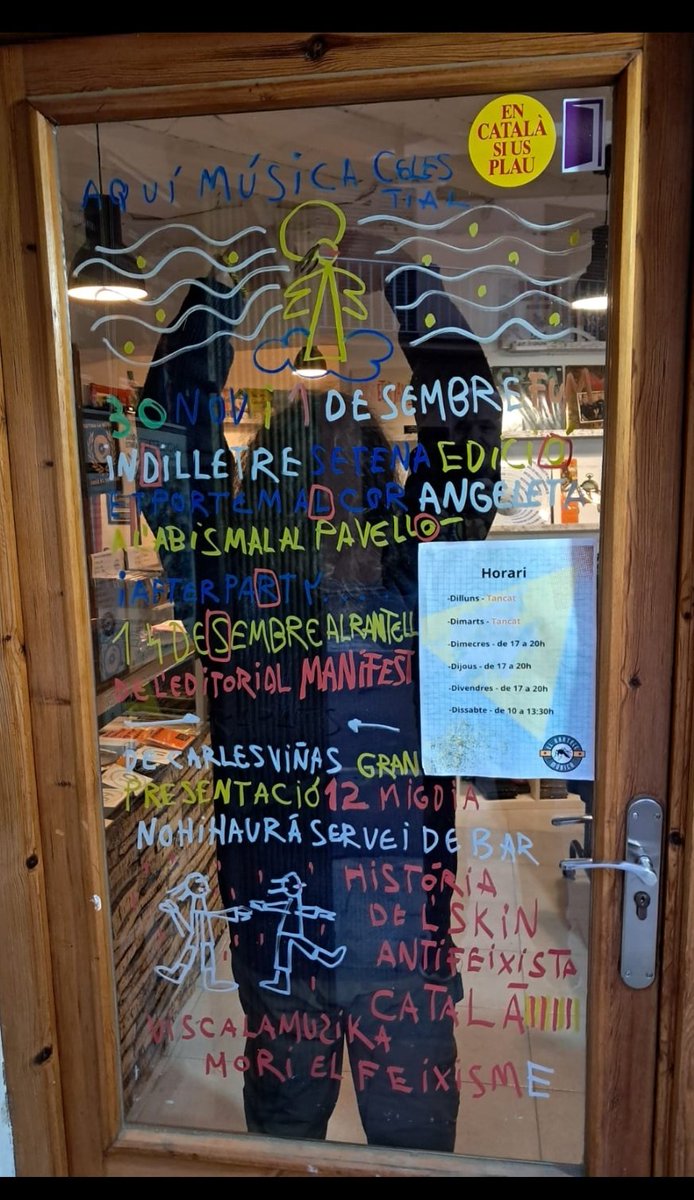 EN
CATALÀ
SI US
PLAU
AQUÍ MÚSICA CELES
TIAL
30 NOV i 1 DESEMBRE
INDILLETRE SETENA EDICIÓ
ET PORTEM AL COR ANGELETA
A L'ABISMAL AL PAVELLÓ
¡AFTERPARTY
14 DESEMBRE AL RANTELL
DE L'EDITORIAL MANIFEST
DE CARLES VIÑAS GRAN
PRESENTACIÓ 12 MIGDIA
NO HI HAURÁ SERVEI DE BAR
HISTÓRIA
DE L'SKIN
ANTIFEIXISTA
CATALÀ
VISCA LA MUZIKA
MORI EL FEIXISME
Horari
-Dilluns - Tancat
-Dimarts - Tancat
-Dimecres - de 17 a 20h
-Dijous - de 17 a 20h
-Divendres - de 17 a 20h
-Dissabte - de 10 a 13:30h